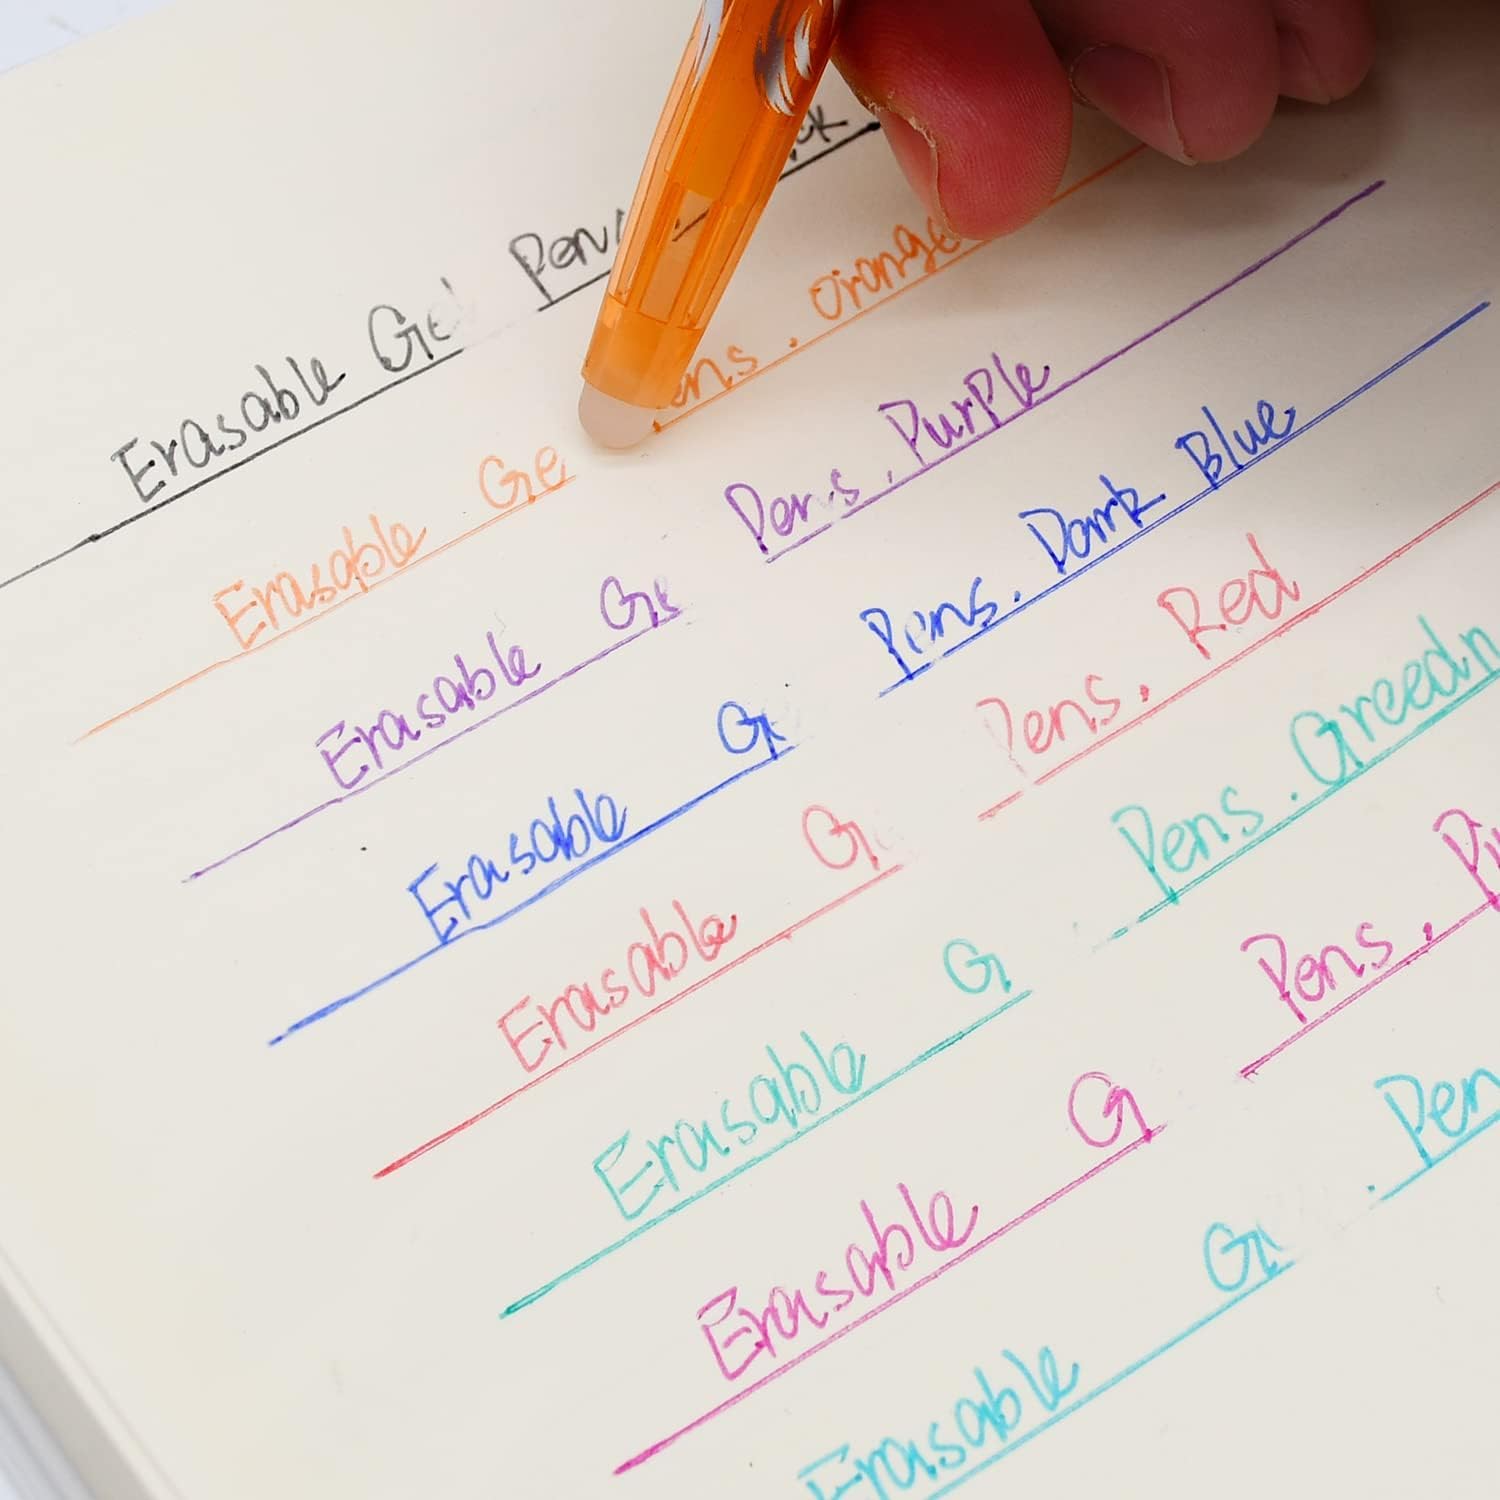 Erasable Ge Pen ck
Erasable Ge ens. Orange
Erasable Ge Pens. Purple
Erasable Ge Pens. Dark Blue
Erasable G Pens. Red
Erasable G Pens. Greedn
Erasable G Pens. Pi
Erasable Ge . Pen